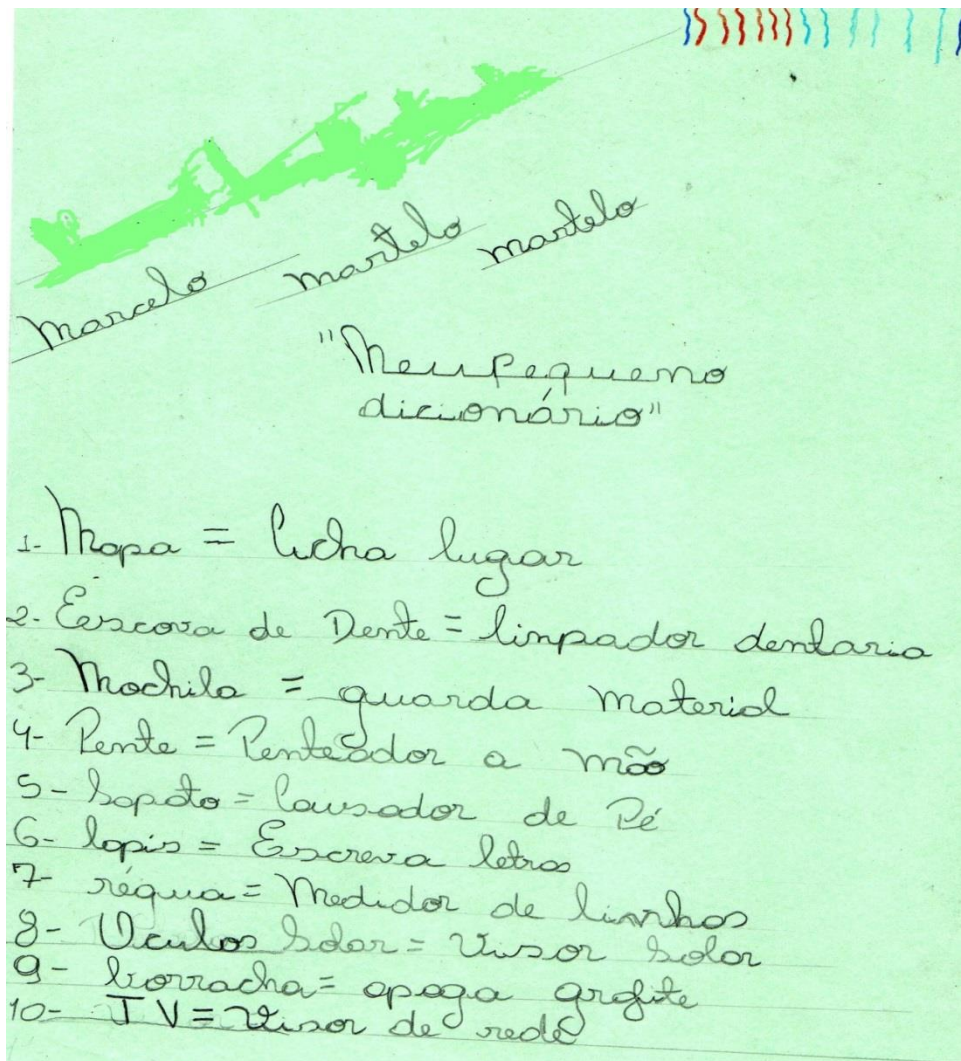 Marcelo martelo martelo
"Meu Pequeno
dicionário"
1- Mapa = lugar
2- Escova de Dente = limpador dentaria
3- Mochila = guarda material
4- Pente = Penteador a mão
5- Sapato = Causador de Pé
6- lapis = Escreva letras
7- régua = Medidor de linhas
8- Oculos Solar = Visor Solar
9- borracha = apaga grafite
10- TV = Visor de rede